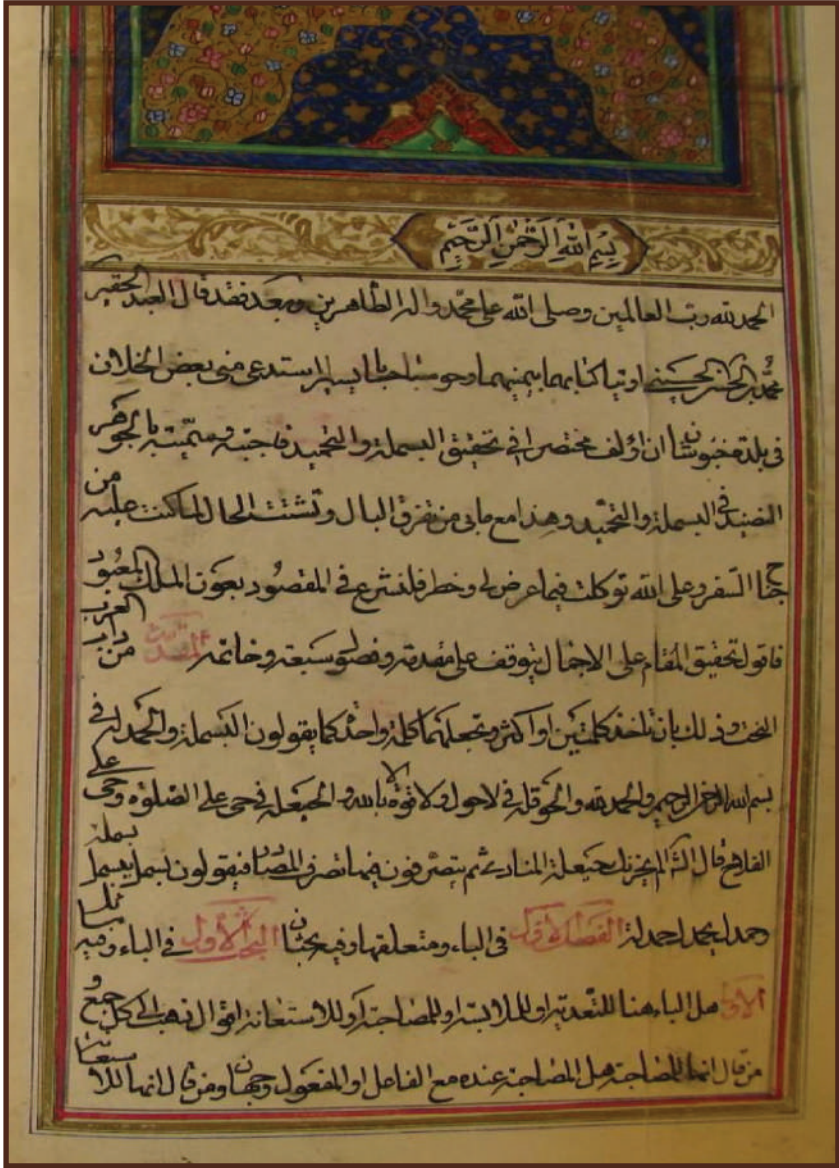 بسم الله الرحمن الرحيم
الحمد لله رب العالمين وصلى الله على محمد واله الطاهرين وبعد فقد قال العبد الحقير
محمد بن الحسن الحسيني اوتيا كتابهما بيمينهما وحوسبا حسابا يسيرا استدعى منى بعض الخلان
فى بلدة خبوشان ان اؤلف مختصرا فى تحقيق البسملة والتحميد فاجبته وسميته بالجوهر
النضيد فى البسملة والتحميد وهذا مع مابى من تفرق البال وتشتت الحال لما كنت عليه من
جناح السفر وعلى الله توكلت فيما عرض لى وخطر فلنشرع فى المقصود بعون الملك المعبود
فاقول تحقيق المقام على الاجمال يتوقف على مقدمة وفصول سبعة وخاتمة المقدمة من داب العرب
النحت وذلك بان تاخذ كلمتين او اكثر وتجعلهما كلمة واحدة كما يقولون البسملة والحمدلة فى
بسم الله الرحمن الرحيم والحمد لله والحوقلة فى لاحول ولا قوة الا بالله والحيعلة فى حى على الصلوة وحى على
الفلاح قال الم يحزنك حيعلة المنادى ثم يتصرفون فيها تصرف المصادر فيقولون بسمل يبسمل بسملة
وحمدل يحمدل حمدلة الفصل الاول فى الباء ومتعلقها وفيه بحثان البحث الاول فى الباء وفيه مسائل
الاولى هل الباء هنا للتعدية او للملابسة او للمصاحبة او للاستعانة اقوال ذهب الى كل جمع و
من قال انها للمصاحبة هل المصاحبة عنده مع الفاعل او المفعول وجهان ومن قال انها للاستعانة